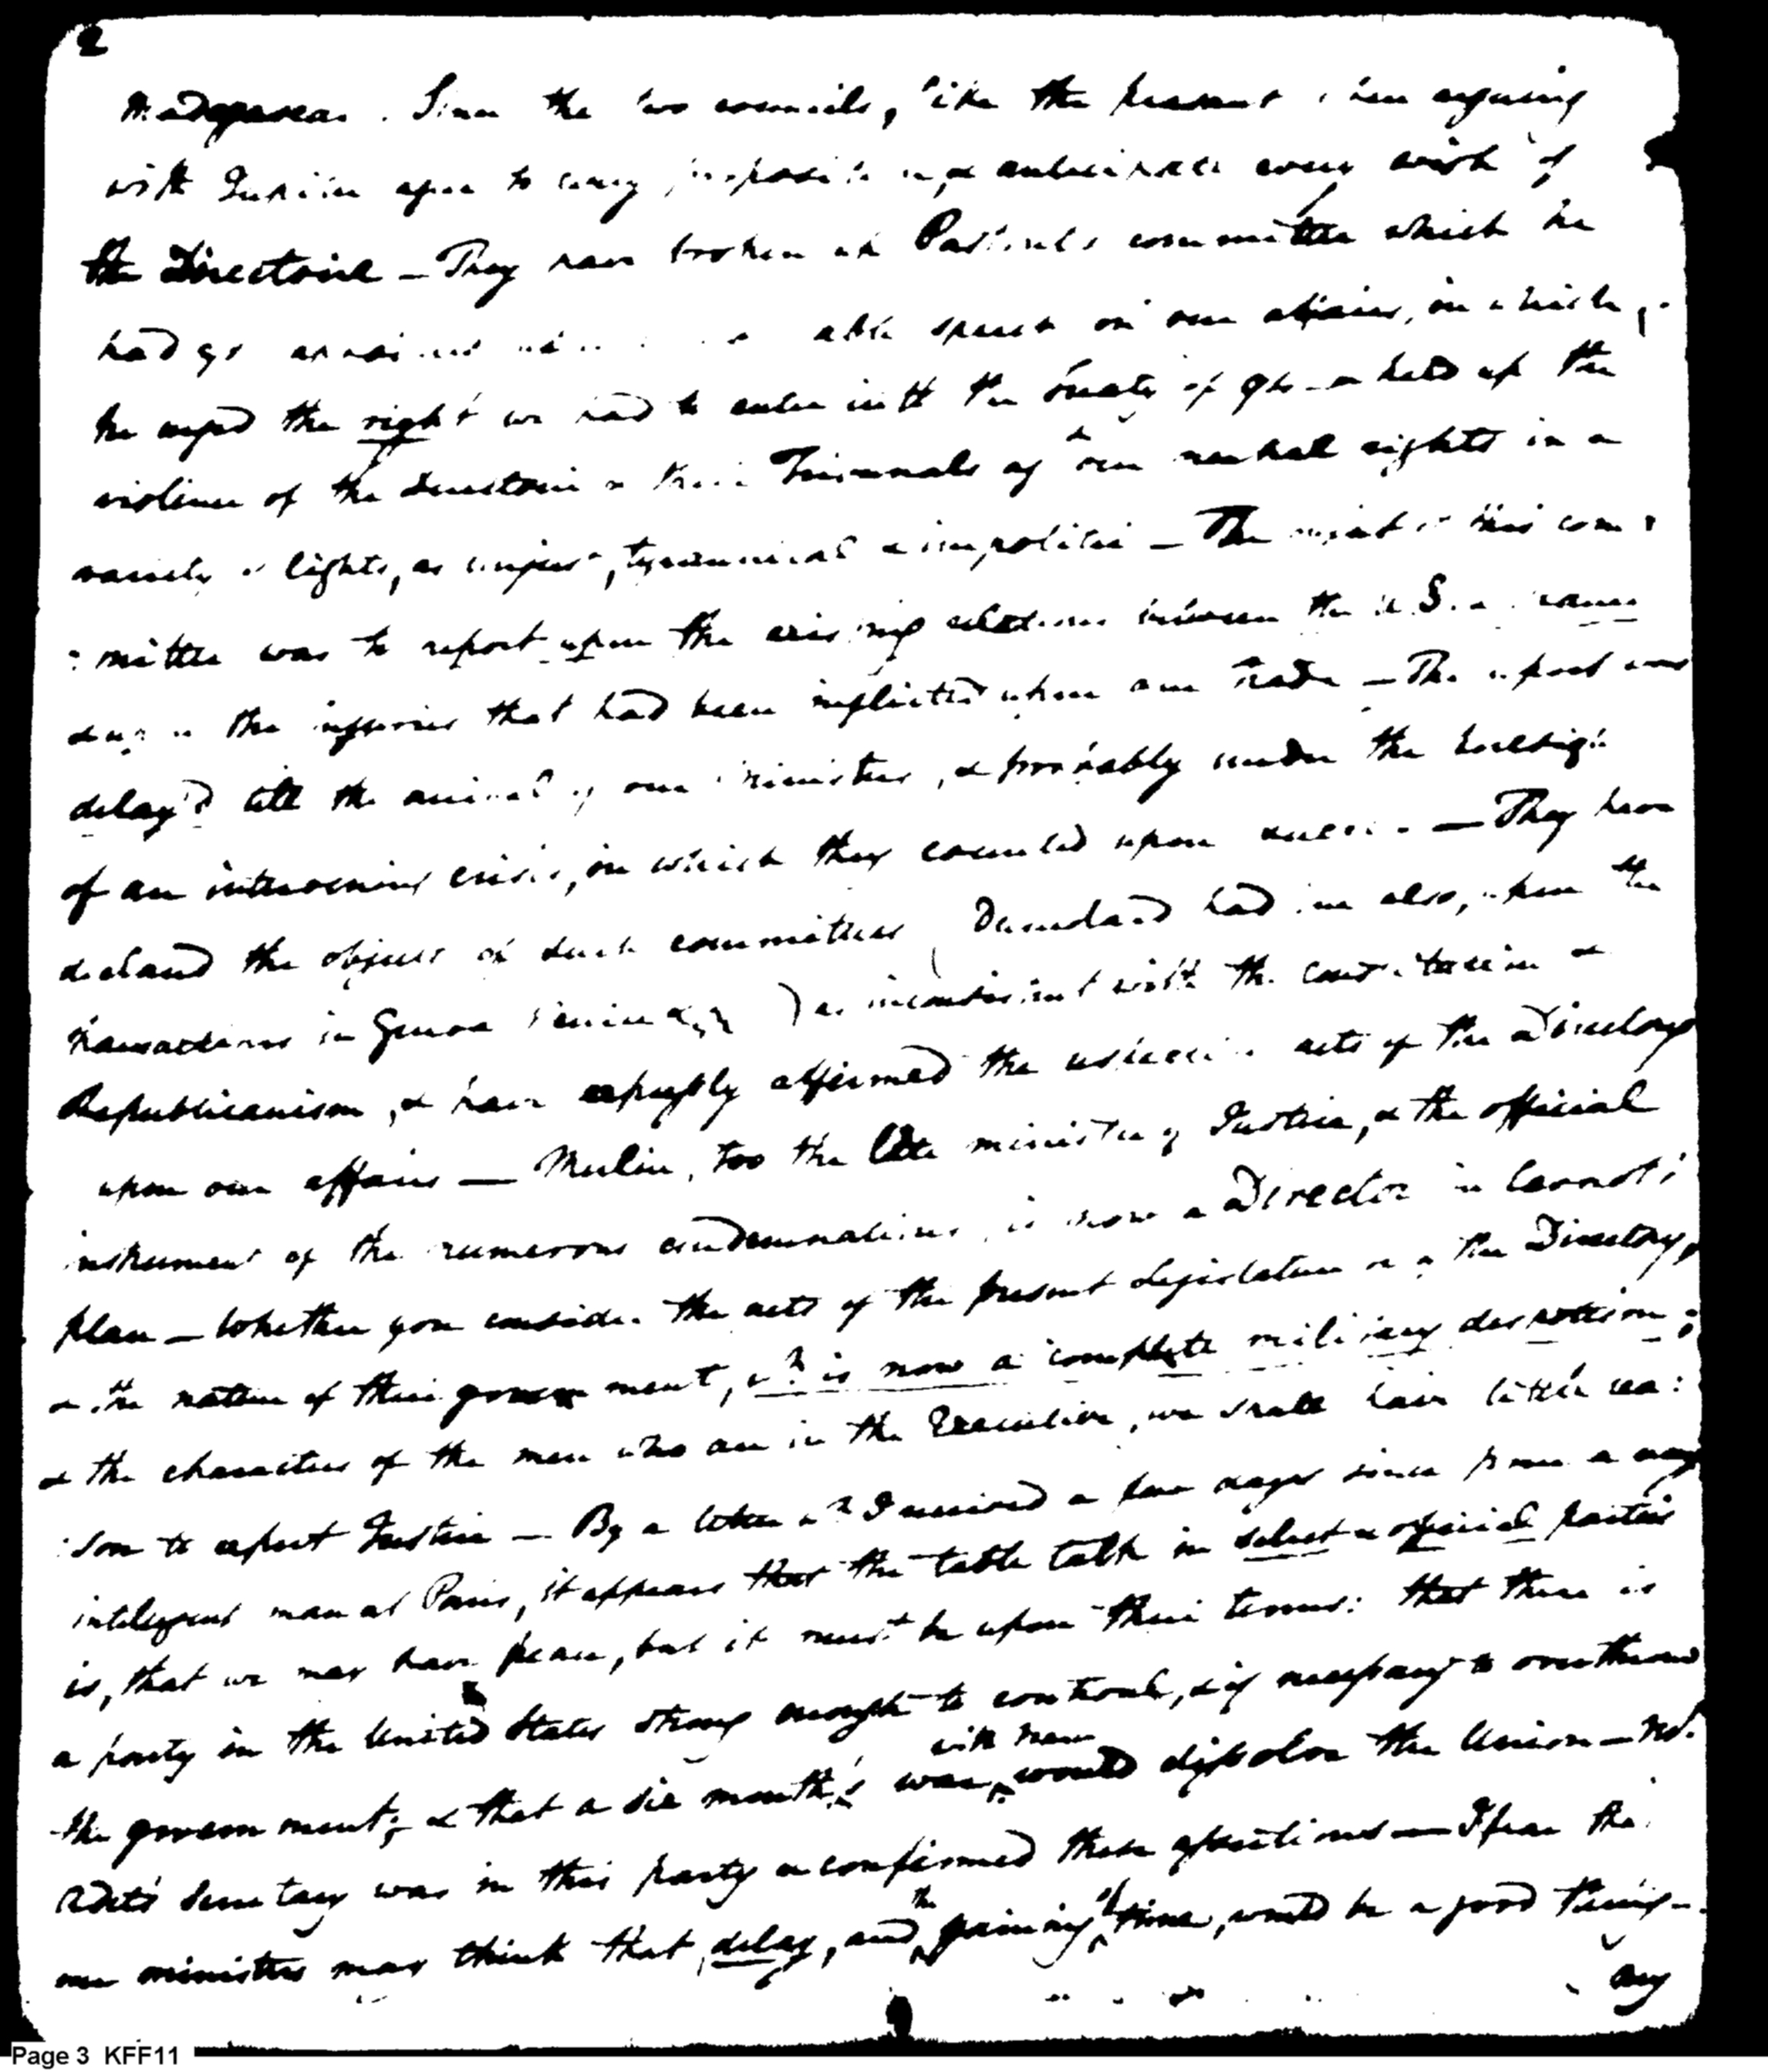 2
Madagascar. Since the two councils, like the peasant when arguing
with Jupiter agree to every proposition, & anticipate every wish of
the Directoire — They have broken up Pastoret's committee which he
had got able speech on our affairs, in which
he urged the right we had to enter into the treaty of & held up the
violence of the directoire & their Tribunals of our neutral rights in a
variety of lights, as unjust, tyrannical & impolitic — The object of this com
: mittee was to report upon the existing relations between the U.S. & france
& upon the injuries that had been inflicted upon our trade — The report was
delay'd till the arrival of our ministers, & probably under the foresight
of an intervening crisis, in which they counted upon success — They have
declared the objects of such committees (Dumolard had one also, upon the
transactions in Genoa Venice &c) as inconsistent with the constitution &
Republicanism, & have expressly affirmed the acts of the Directory
upon our affairs — Merlin, too the late minister of Justice, & the official
instrument of the numerous condemnations, is now a Director in Carnot's
place — Whether you consider the acts of the present Legislature or of the Directory,
& the nature of their government, wh is now a complete military despotism;
& the characters of the men who are in the Executive, we shall have little rea:
:son to expect Justice — By a letter wh I received a few days since from a very
intelligent man at Paris, it appears that the table talk in select & official parties
is, that we may have peace, but it must be upon their terms: that there is
a party in the United States strong enough to controul, & if necessary to overthrow
the government; & that a six month's war, with them would dissolve the Union —
Adet's Secretary was in this party & confirmed these assertions — I fear the
our ministers may think that, delay, and the gaining of time, would be a good thing —
any
Page 3 KFF11